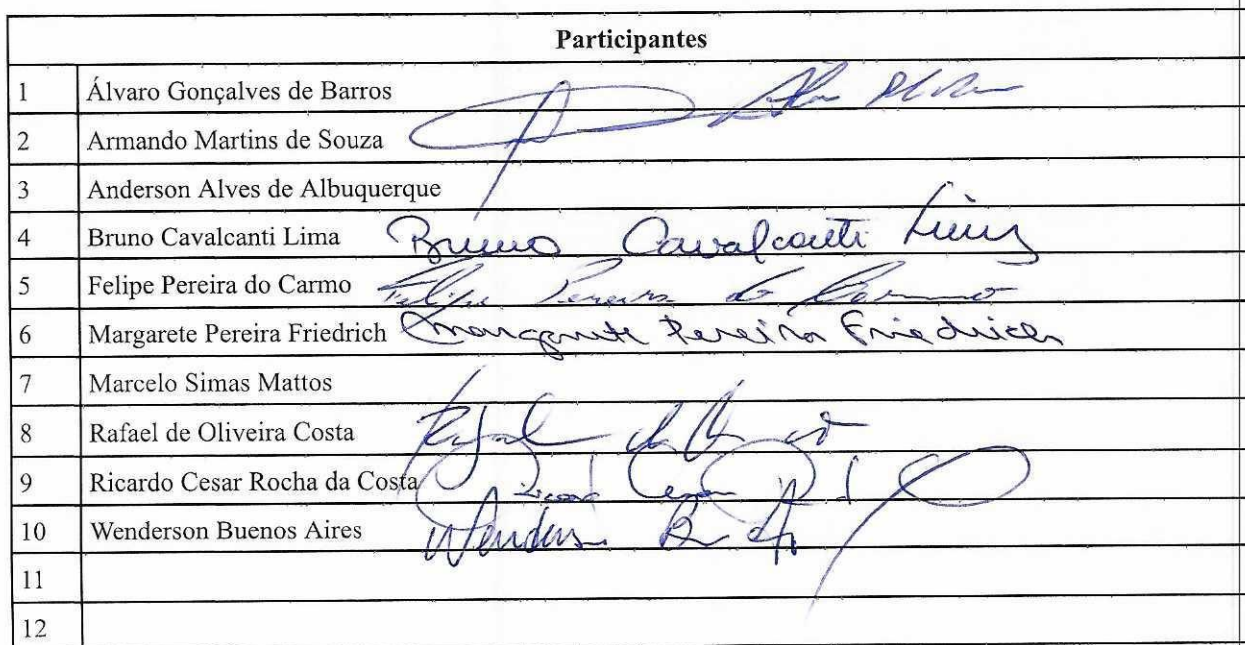 Participantes
1 Álvaro Gonçalves de Barros
2 Armando Martins de Souza
3 Anderson Alves de Albuquerque
4 Bruno Cavalcanti Lima Bruno Cavalcanti Lima
5 Felipe Pereira do Carmo Felipe Pereira do Carmo
6 Margarete Pereira Friedrich Margarete Pereira Friedrich
7 Marcelo Simas Mattos
8 Rafael de Oliveira Costa Rafael
9 Ricardo Cesar Rocha da Costa Ricardo Cesar
10 Wenderson Buenos Aires Wenderson
11
12